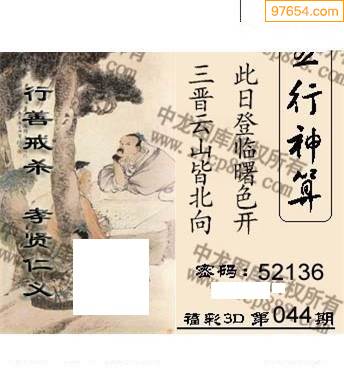 97654.com
五行神算
此日登临曙色开
三晋云山皆北向
行善戒杀 孝贤仁义
密码：52136
福彩3D 第044期
中龙图库版权所有